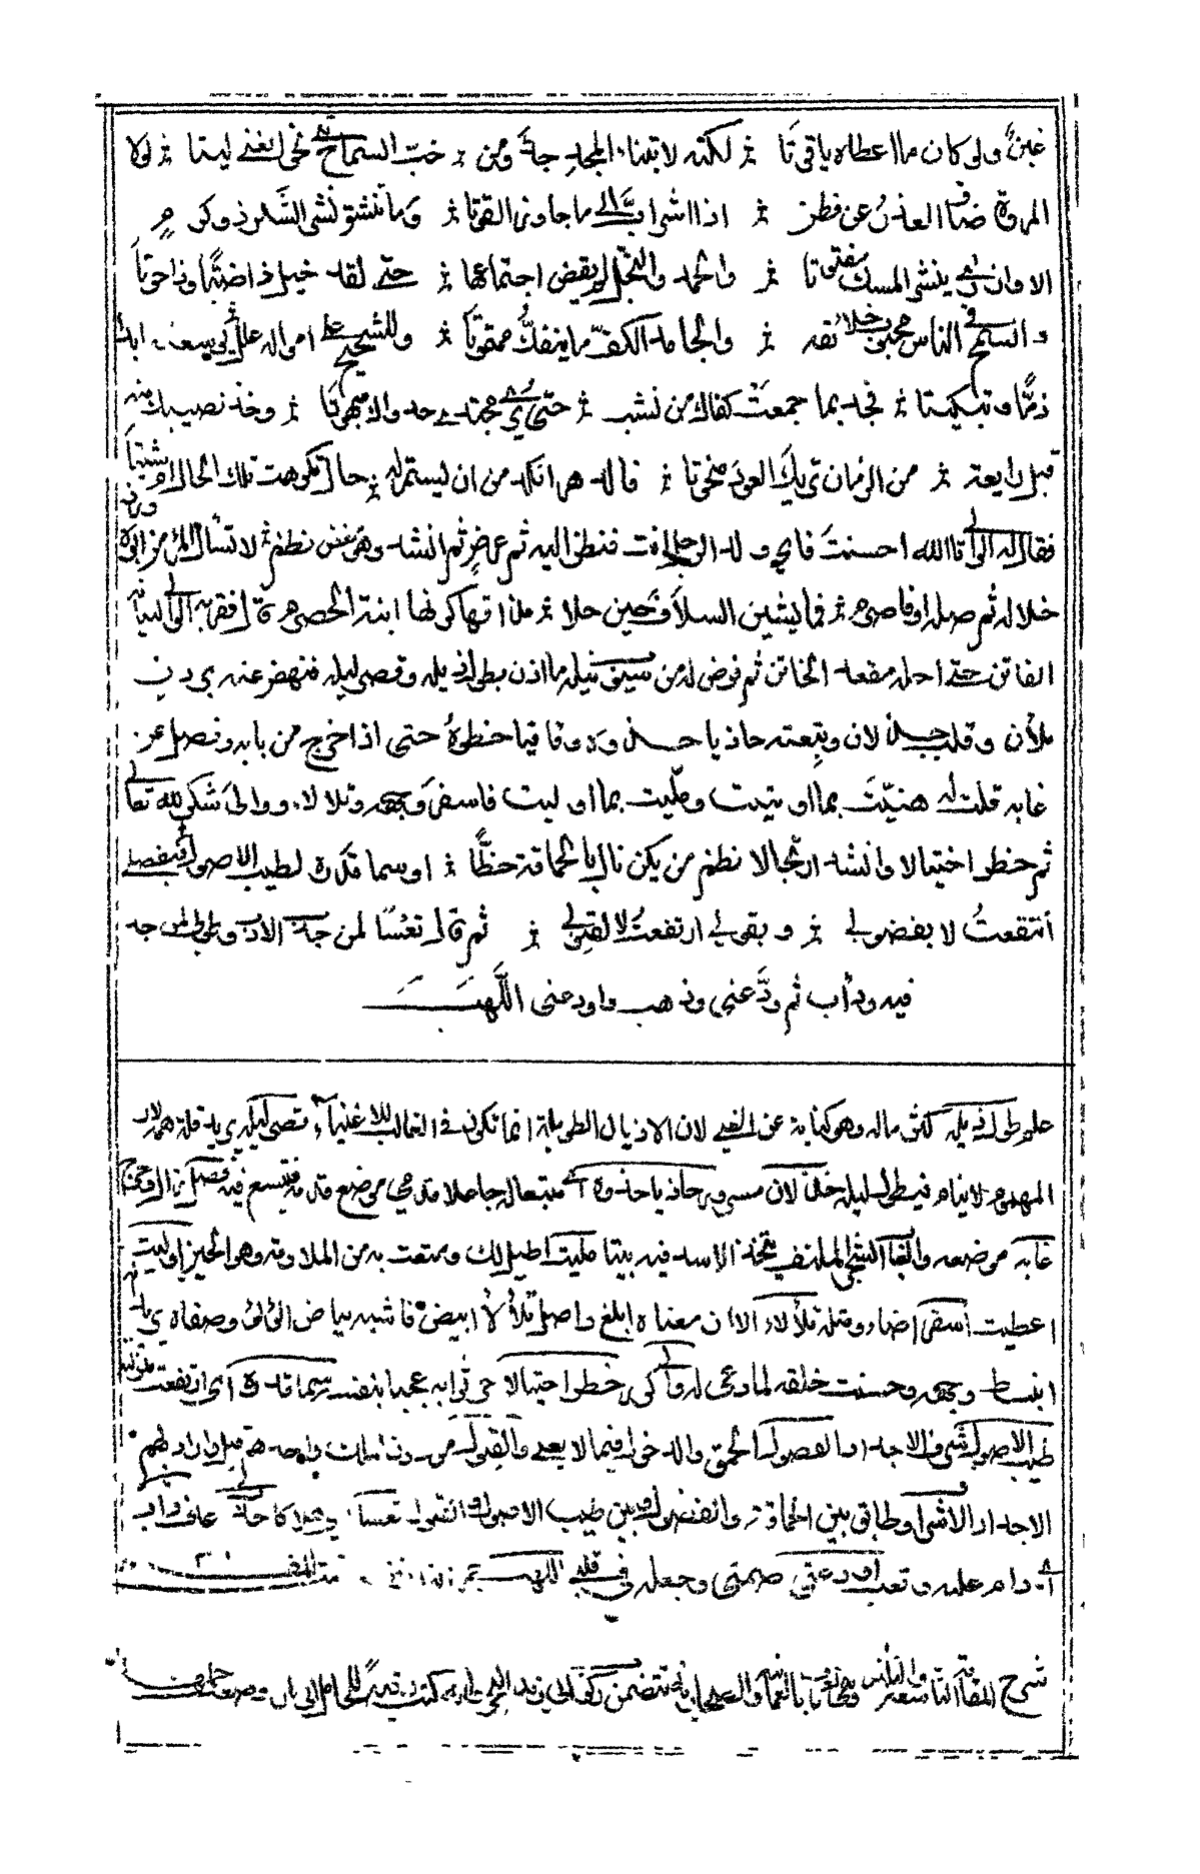 غبن ولو كان ما اعطاه ياقوتا ۞ لكنه لابتناء المجد جدّ ومن ۞ حبّ السماح ثنى نحو الغنى ليتا ۞ لولا
المروة ضاق العذر عن فطن ۞ اذا اشرأبّ الى ما جاوز القوتا ۞ وما تنشق نشر الشكر ذو كرم
الا وازرى بنشر المسك مفتوتا ۞ والحمد والبخل لم يقض اجتماعهما ۞ حتى لقد خيل ذا ضبّا وذا حوتا
والسمح فى الناس محبوب خلائقه ۞ والجامد الكف ما ينفكّ ممقوتا ۞ وللشحيح على امواله علل يوسعنه ابدا
ذمّا وتبكيتا ۞ فجد بما جمعت كفاك من نشب ۞ حتى يرى مجتدى جدواك مبهوتا ۞ وخذ نصيبك منه
قبل رايعة ۞ من الزمان تريك العود منحوتا ۞ فالدهر انكد من ان يستمر له ۞ حال تكرهت تلك الحال ام شيتا
فقال له الوالى تالله احسنت فاى ولد الرجل انت فنظر اليه عن عرض ثم انشد وهو مغض نظم ۞ لا تسأل المرء من ابوه ورز
خلاله ثم صله او فاصرم ۞ فما يشين السلاف حين حلا ۞ مذاقها كونها ابنة الحصرم قال فقربه الوالى لبيانه
الفاتن حتى احله مقعد الخاتن ثم فرض له من سيوب نيله ما اذن بطول ذيله وقصر ليله فنهض عنه بردن
ملآن وقلب جذلان وتبعته حاذيا حذوه وقافيا خطوه حتى اذا خرج من بابه وفصل عن
غابه قلت له هنيت بما اوتيت ومليت بما اوليت فاسفر وجهه وتلالاء ووالى شكر لله تعالى
ثم خطر اختيالا وانشد ارتجالا نظم من يكن نال بالحماقة حظًّا ۞ او سما قدره لطيب الاصول فبفضلى
انتفعت لا بفضولى ۞ وبقولى ارتفعت لا لقيولى ۞ ثم قال تعسا لمن جدب الادب وطوبى لمن جد
فيه ودأب ثم ودّعنى وذهب واودعنى اللّهب
حله وطول ذيله كثر ماله وهو كناية عن الغنى لان الاذيال الطويلة انما تكون فى الغالب للاغنياء وقصر ليله يريد قلة همه لان
المهموم لا ينام فيطول ليله جذلان مسرور حاذيا حذوه اى متبعا له جاعلا قدمى موضع قدمه فصل زال وخرج
غابه موضعه والغاب الشجر الملتف يتخذ الاسد فيه بيتا مليت اطيل لك ومتعت به من الملاوة وهو الحين اوليت
اعطيت اسفر اضاء ومثله تلألاء الا ان معناه ابلغ واصل تلألأ ابيض فاشبه بياض اللؤلؤ وصفاه يريد
انبسط وجهه وحسنت خلقه لما دعى له والى كرر خطر اختيالا جر ثوابه عجبا بنفسه سما قدره اى ارتفعت منزلته
طيب الاصول شرف الاجداد الفضول الحمق والدخول فيما لا يعنى والقيول
الاجداد الاشراف وطابق بين الحماقة والفضول وبين طيب الاصول والقيول تعسا
اى دام عليه وتعب اودعنى ضمنى وجعل فى قلبى اللهب
شرح المقامة التاسعة والثلاثين وتعرف بالعمانية